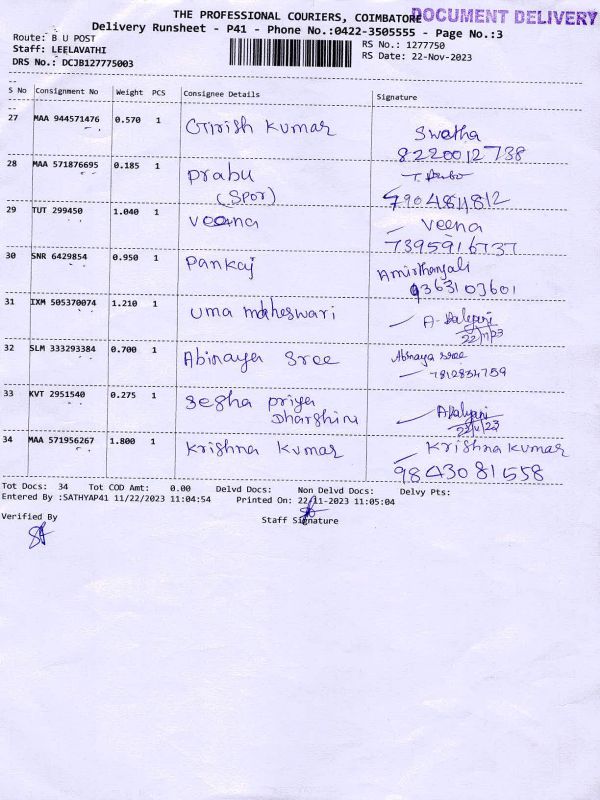 THE PROFESSIONAL COURIERS, COIMBATORE
DOCUMENT DELIVERY
Delivery Runsheet - P41 - Phone No.:0422-3505555 - Page No.:3
Route: B U POST
RS No.: 1277750
Staff: LEELAVATHI
RS Date: 22-Nov-2023
DRS No.: DCJB127775003
S No Consignment No Weight PCS Consignee Details Signature
27 MAA 944571476 0.570 1 Girish Kumar Swatha
8220012738
28 MAA 571876695 0.185 1 Prabu
(Spor) 7904811812
29 TUT 299450 1.040 1 Veena Veena
7395916737
30 SNR 6429854 0.950 1 Pankaj Amirthanjali
9363103601
31 IXM 505370074 1.210 1 Uma maheswari A. Kalyani
22/11/23
32 SLM 333293384 0.700 1 Abinaya Sree Abinaya sree
7812834759
33 KVT 2951540 0.275 1 Segha priya
Dharshini A Kalyani
22/11/23
34 MAA 571956267 1.800 1 Krishna Kumar Krishna Kumar
9843081558
Tot Docs: 34 Tot COD Amt: 0.00 Delvd Docs: Non Delvd Docs: Delvy Pts:
Entered By :SATHYAP41 11/22/2023 11:04:54 Printed On: 22/11-2023 11:05:04
Verified By
Staff Signature